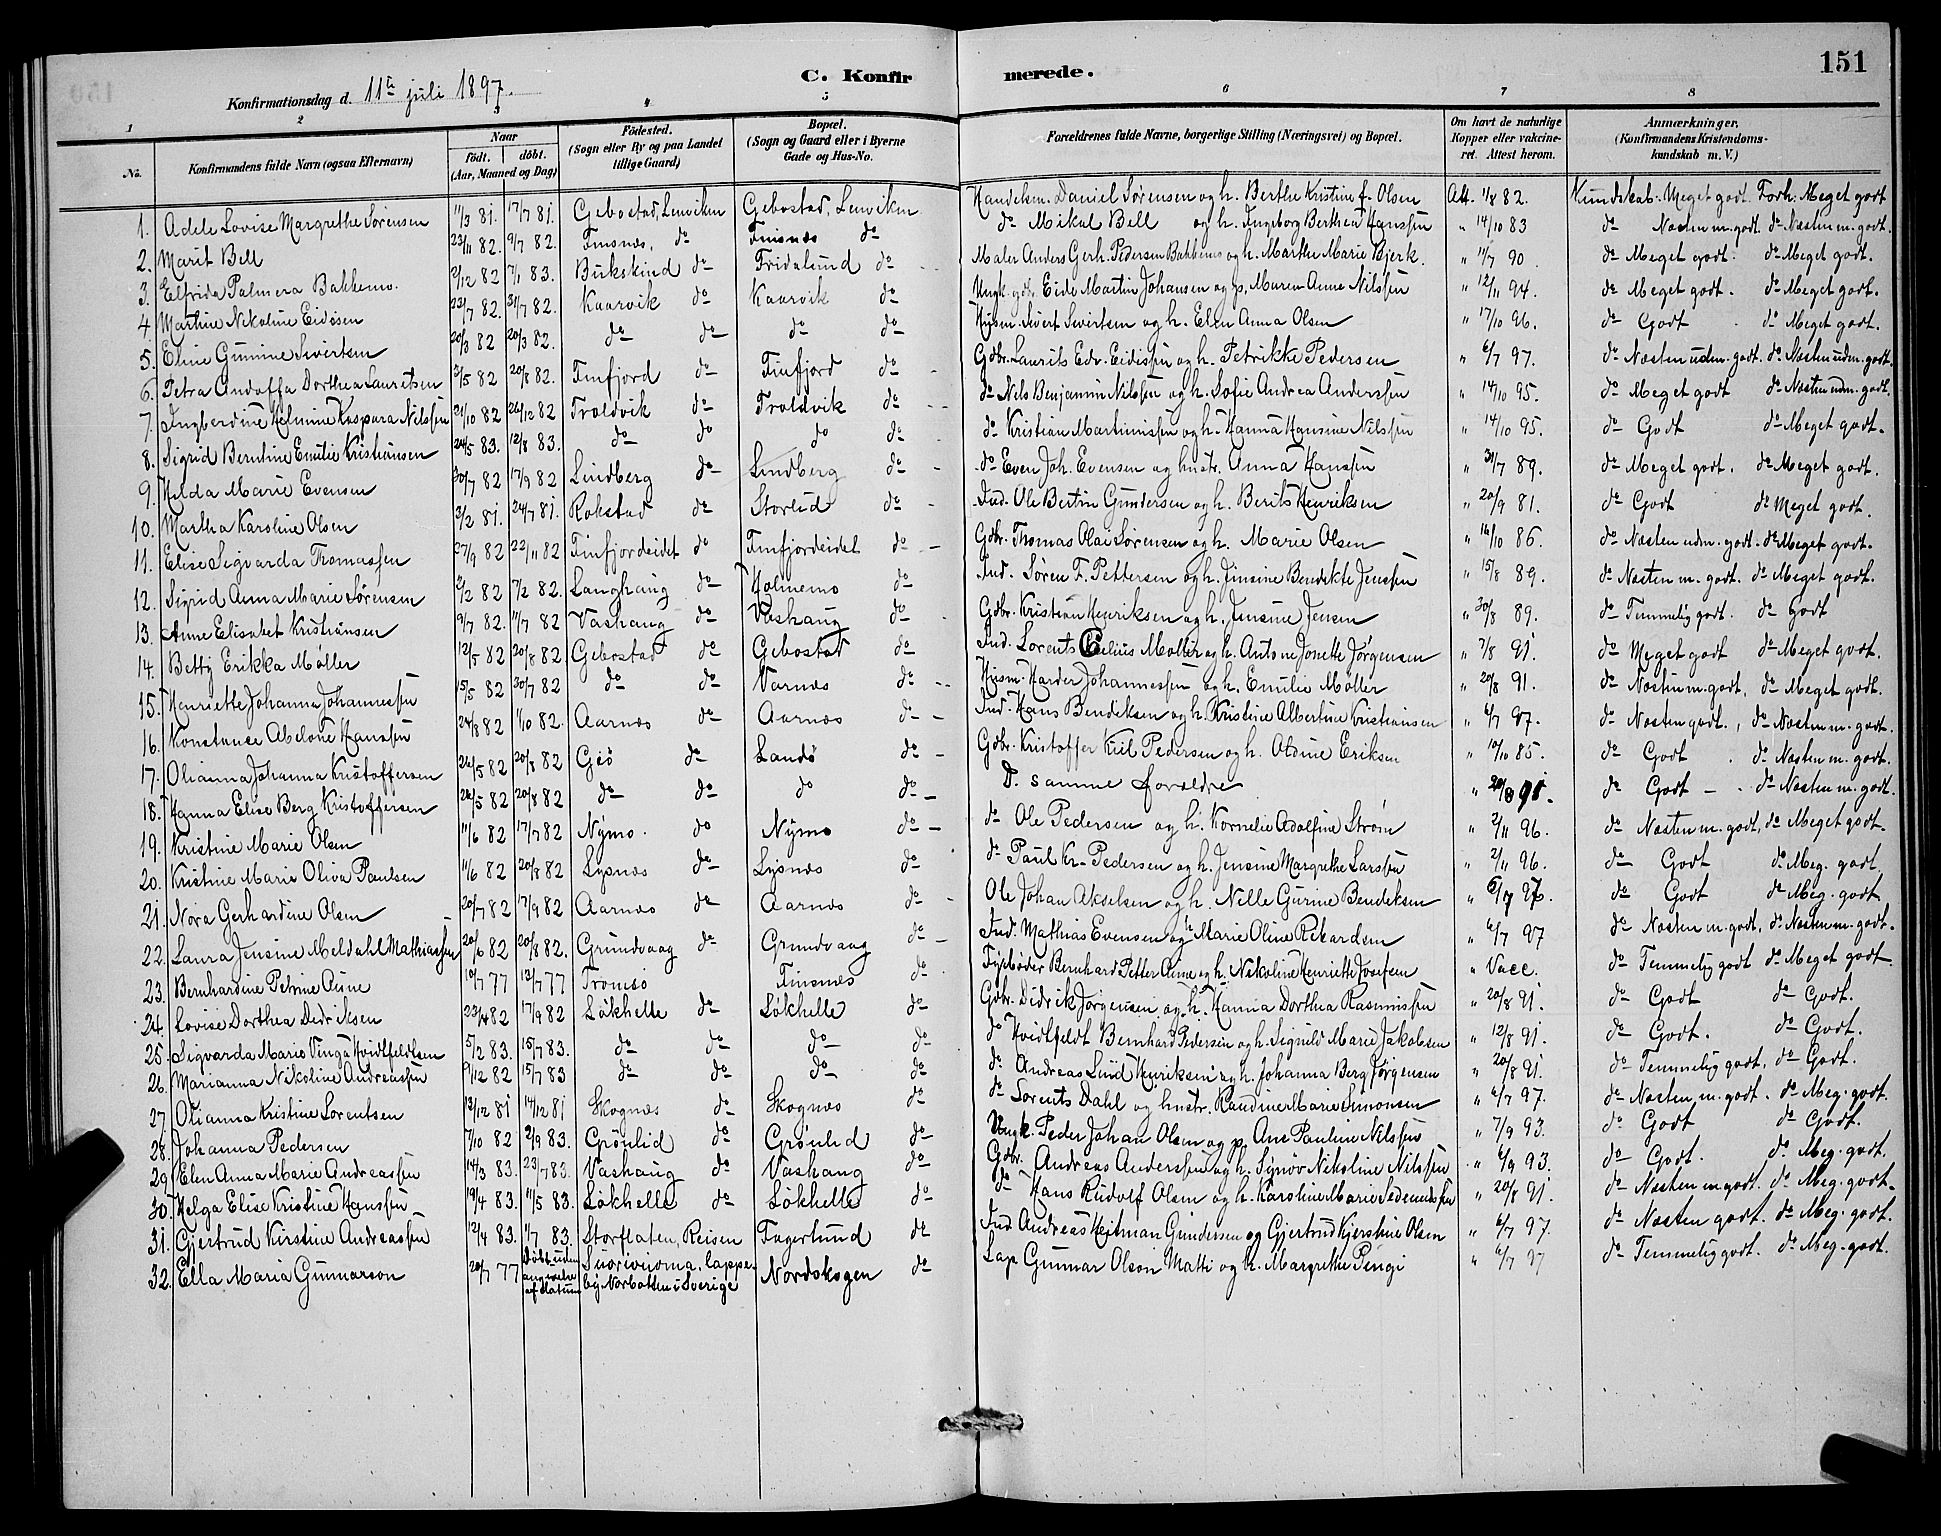 151
C. Konfirmerede.
Konfirmationsdag d. 11te juli 1897.
1 2 3 4 5 6 7 8
No. Konfirmandens fulde Navn (ogsaa Efternavn) Naar født. døbt. (Aar, Maaned og Dag) Fødested. (Sogn eller By og paa Landet tillige Gaard) Bopæl. (Sogn og Gaard eller i Byerne Gade og Hus-No. Forældrenes fulde Navne, borgerlige Stilling (Næringsvei) og Bopæl. Om havt de naturlige Kopper eller vakcineret. Attest herom. Anmærkninger. (Konfirmandens Kristendomskundskab m. V.)
1. Adele Lovise Margrethe Sørensen 11/3 81. 17/7 81. Gebostad, Lenviken Gebostad, Lenviken Handelsm. Daniel Sørensen og h. Berthe Kristine f. Olsen Att. 1/8 82. Kundskab. Meget godt. Forh. Meget godt
2. Marit Bell 23/11 82. 9/7 82. Finsnæs, do Finsnæs do do Mikal Bell og h. Ingeborg Berthea Hanssen " 14/10 83 do Næsten m. godt. do Næsten m. godt.
3. Elfrida Palmera Bakkemo. 2/12 82 7/1 83. Bukskind do Fridalund do Maler Anders Gerh. Pedersen Bakkemo og h. Marthe Marie Bjerk. " 11/7 90. do Meget godt. do Meget godt.
4. Martine Nikoline Eidesen 23/7 82. 31/7 82. Kaarvik do Kaarvik do Ungk. gdbr. Eide Martin Johansen og p. Maren Anne Nilssen " 12/11 94. do Meget godt. do Meget godt.
5. Eline Gunine Sivertsen 20/3 82 20/3 82. do do do do Husm. Sivert Sivertsen og h. Elen Anna Olsen " 17/10 96. do Godt. do Meget godt.
6. Petra Andoffa Dorthea Lauritsen 3/5 82 20/8 82. Finfjord do Finfjord do Gdbr. Laurits Edv. Eidissen og h. Petrikke Pedersen " 6/7 97. do Næsten udm. godt. do Næsten udm. godt.
7. Ingberdine Helmine Kaspara Nilssen 21/10 82 26/12 82 Troldvik do Troldvik do do Nils Benjamin Nilssen og h. Sofie Andrea Anderssen " 14/10 95. do Meget godt do Næsten udm. godt.
8. Sigrid Berntine Emilie Kristiansen 24/5 83. 12/8 83. do do do do do Kristian Martinussen og h. Hanna Hansine Nilssen " 14/10 95. do Godt do Meget godt.
9. Hilda Marie Evensen 30/7 82 17/9 82 Lindberg do Lindberg do do Even Joh. Evensen og hustr. Anna Hanssen " 31/7 89. do Meget godt. do Meget godt.
10. Martha Karoline Olsen 3/2 81. 24/7 81. Rokstad do Storlid do Ind. Ole Bertin Gundersen og h. Berit Henriksen " 20/9 81. do Godt do Meget godt.
11. Elise Sigvarda Thomassen 27/9 82 22/11 82 Finfjordeidet do Finfjordeidet do Gdbr. Thomas Olai Sørensen og h. Marie Olsen " 16/10 86. do Næsten udm. godt. do Meget godt.
12. Sigrid Anna Marie Sørensen 2/2 82 7/2 82. Langhaug do Holmemo do Ind. Søren F. Pettersen og h. Jensine Bendikte Jenssen " 15/8 89. do Næsten m. godt. do Meget godt.
13. Anne Elisabet Kristiansen 9/7 82. 11/7 82 Vashaug do Vashaug do Gdbr. Kristian Henriksen og h. Jensine Jensen " 30/8 89. do Temmelig godt. do Godt
14. Betty Erikka Møller 12/5 82 20/8 82 Gebostad do Gebostad do Ind. Lorents Celius Møller og h. Antone Jonette Jørgensen " 7/8 91. do Meget godt do Meget godt.
15. Henriette Johanna Johannessen 15/5 82 30/7 82 do do Varnæs do Husm. Harder Johannessen og h. Emilie Møller " 20/8 91. do Næsten m. godt, do Meget godt.
16. Konstanse Abelone Hanssen 24/8 82 1/10 82. Aarnæs do Aarnæs do Ind. Hans Bendiksen og h. Kristine Albertine Kristiansen " 6/7 97. do Næsten godt., do Næsten m. godt.
17. Olianna Johanna Kristoffersen 26/5 82 20/8 82 Gisø do Landø do Gdbr. Kristoffer Kiil Pedersen og h. Aldine Eriksen " 10/10 85. do Godt. do Næsten m. godt.
18. Hanna Elise Berg Kristoffersen 26/5 82 20/8 82 do do do do D. samme forældre " 20/8 91. do Godt do Næsten m. godt.
19. Kristine Marie Olsen 11/6 82 17/7 82 Nymo. do Nymo do do Ole Pedersen og h. Kornelie Adolfine Strøm " 2/11 96. do Næsten m. godt, do Meget godt.
20. Kristine Marie Oliva Paulsen 11/6 82 20/8 82 Lysnæs do Lysnæs do do Paul Kr. Pedersen og h. Jensine Margrethe Larssen " 2/11 96. do Godt do Meg. godt.
21. Nora Gerhardine Olsen 20/7 82 17/9 82 Aarnæs do Aarnæs do Ole Johan Akselsen og h. Nelle Gurine Bendiksen do Godt do Meg. godt
22. Laura Jensine Meldahl Mathiassen 20/6 82 20/8 82. Grundvaag do Grundvaag do Ind. Mathias Evensen og h. Marie Oline Rikardsen " 6/7 97 do Næsten m. godt, do Næsten m. godt.
23. Bernhardine Petrine Aune 10/7 77 12/7 77 Tromsø Finsnæs do Fyrbøder Bernhard Petter Aune og h. Nikoline Henriette Josefsen " Vacc. do Temmelig godt do Meget godt
24. Lovise Dorthea Didriksen 23/4 82 17/9 82 Løkhelle do Løkhelle do Gdbr. Didrik Jørgensen og h. Hanna Dorthea Rasmussen " 20/8 91. do Godt do Godt.
25. Sigvarda Marie Vinga Hvidtfeldtsen 5/2 83. 15/7 83. do do do do do Hvidtfeldt Bernhard Pedersen og h. Signild Marie Jakobsen " 12/8 91. do Godt. do Godt.
26. Marianna Nikoline Andreassen 9/12 82 15/7 83 do do do do do Andreas Lind Henriksen og h. Johanna Berg Jørgensen " 20/8 91. do Temmelig godt, do Godt.
27 Olianna Kristine Lorentsen 13/12 81 14/12 81 Skognæs do Skognæs do do Lorents Dahl og hustr. Randine Marie Simonsen " 6/7 97. do Næsten m. godt. do Meg. godt.
28. Johanna Pedersen 7/10 82 2/9 83. Grønlid do Grønlid do Ungk. Peder Johan Olsen og p. Ane Pauline Nilssen " 7/9 93. do Godt do Godt.
29. Elen Anna Marie Andreassen 14/3 83. 23/7 83. Vashaug do Vashaug do Gdbr. Andreas Anderssen og h. Synøv Nikoline Nilssen " 6/9 93. do Godt. do Meg. godt.
30. Helga Elise Kristine Hanssen 19/4 83. 11/5 83. Løkhelle do Løkhelle do do Hans Rudolf Olsen og h. Karoline Marie " 20/8 91. do Næsten m. godt. do Meg. godt.
31. Gjertrud Kirstine Andreassen 12/4 83. 1/7 83. Storflaten, Reisen Fagerlund do Ind Andreas Heitman Gundersen og Gjertrud Kjerstine Olsen " 6/7 97. do Næsten godt. do Meg. godt.
32. Ella Maria Gunnarson 20/7 77 Døbt uden angivelse af datum lappeby Norbotten i Sverige Nordskogen do Lap Gunnar Olson Matti og h. Margrethe Pingi " 6/7 97 do Temmelig godt. do Meg. godt.